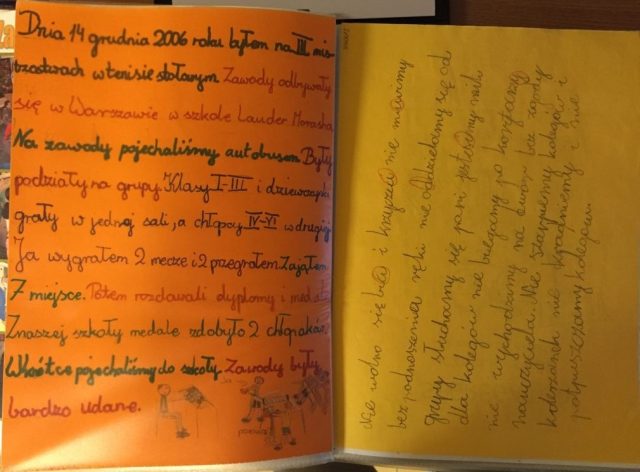 Dnia 14 grudnia 2006 roku byłem na III mis-
trzostwach w tenisie stołowym Zawody odbywały
się w Warszawie w szkole Lauder Morasha
Na zawody pojechaliśmy autobusem Były
podziały na grupy Klasy I-III i dziewczynki
grały w jednej sali, a chłopcy IV-VI w drugiej
Ja wygrałem 2 mecze i 2 przegrałem Zająłem
7 miejsce. Potem rozdawali dyplomy i medale
Znaszej szkoły medale zdobyło 2 chłopaków.
Wkrótce pojechaliśmy do szkoły. Zawody były
bardzo udane.
Nie wolno się bić i krzyczeć nie mówimy
bez podnoszenia ręki nie oddzielamy się od
grupy słuchamy się pani jesteśmy mili
dla kolegów nie biegamy po korytarzu
nie wychodzimy na dwór bez zgody
nauczyciela. Nie szarpiemy kolegów i
koleżanek nie kradniemy i nie
popuszczamy kolegom